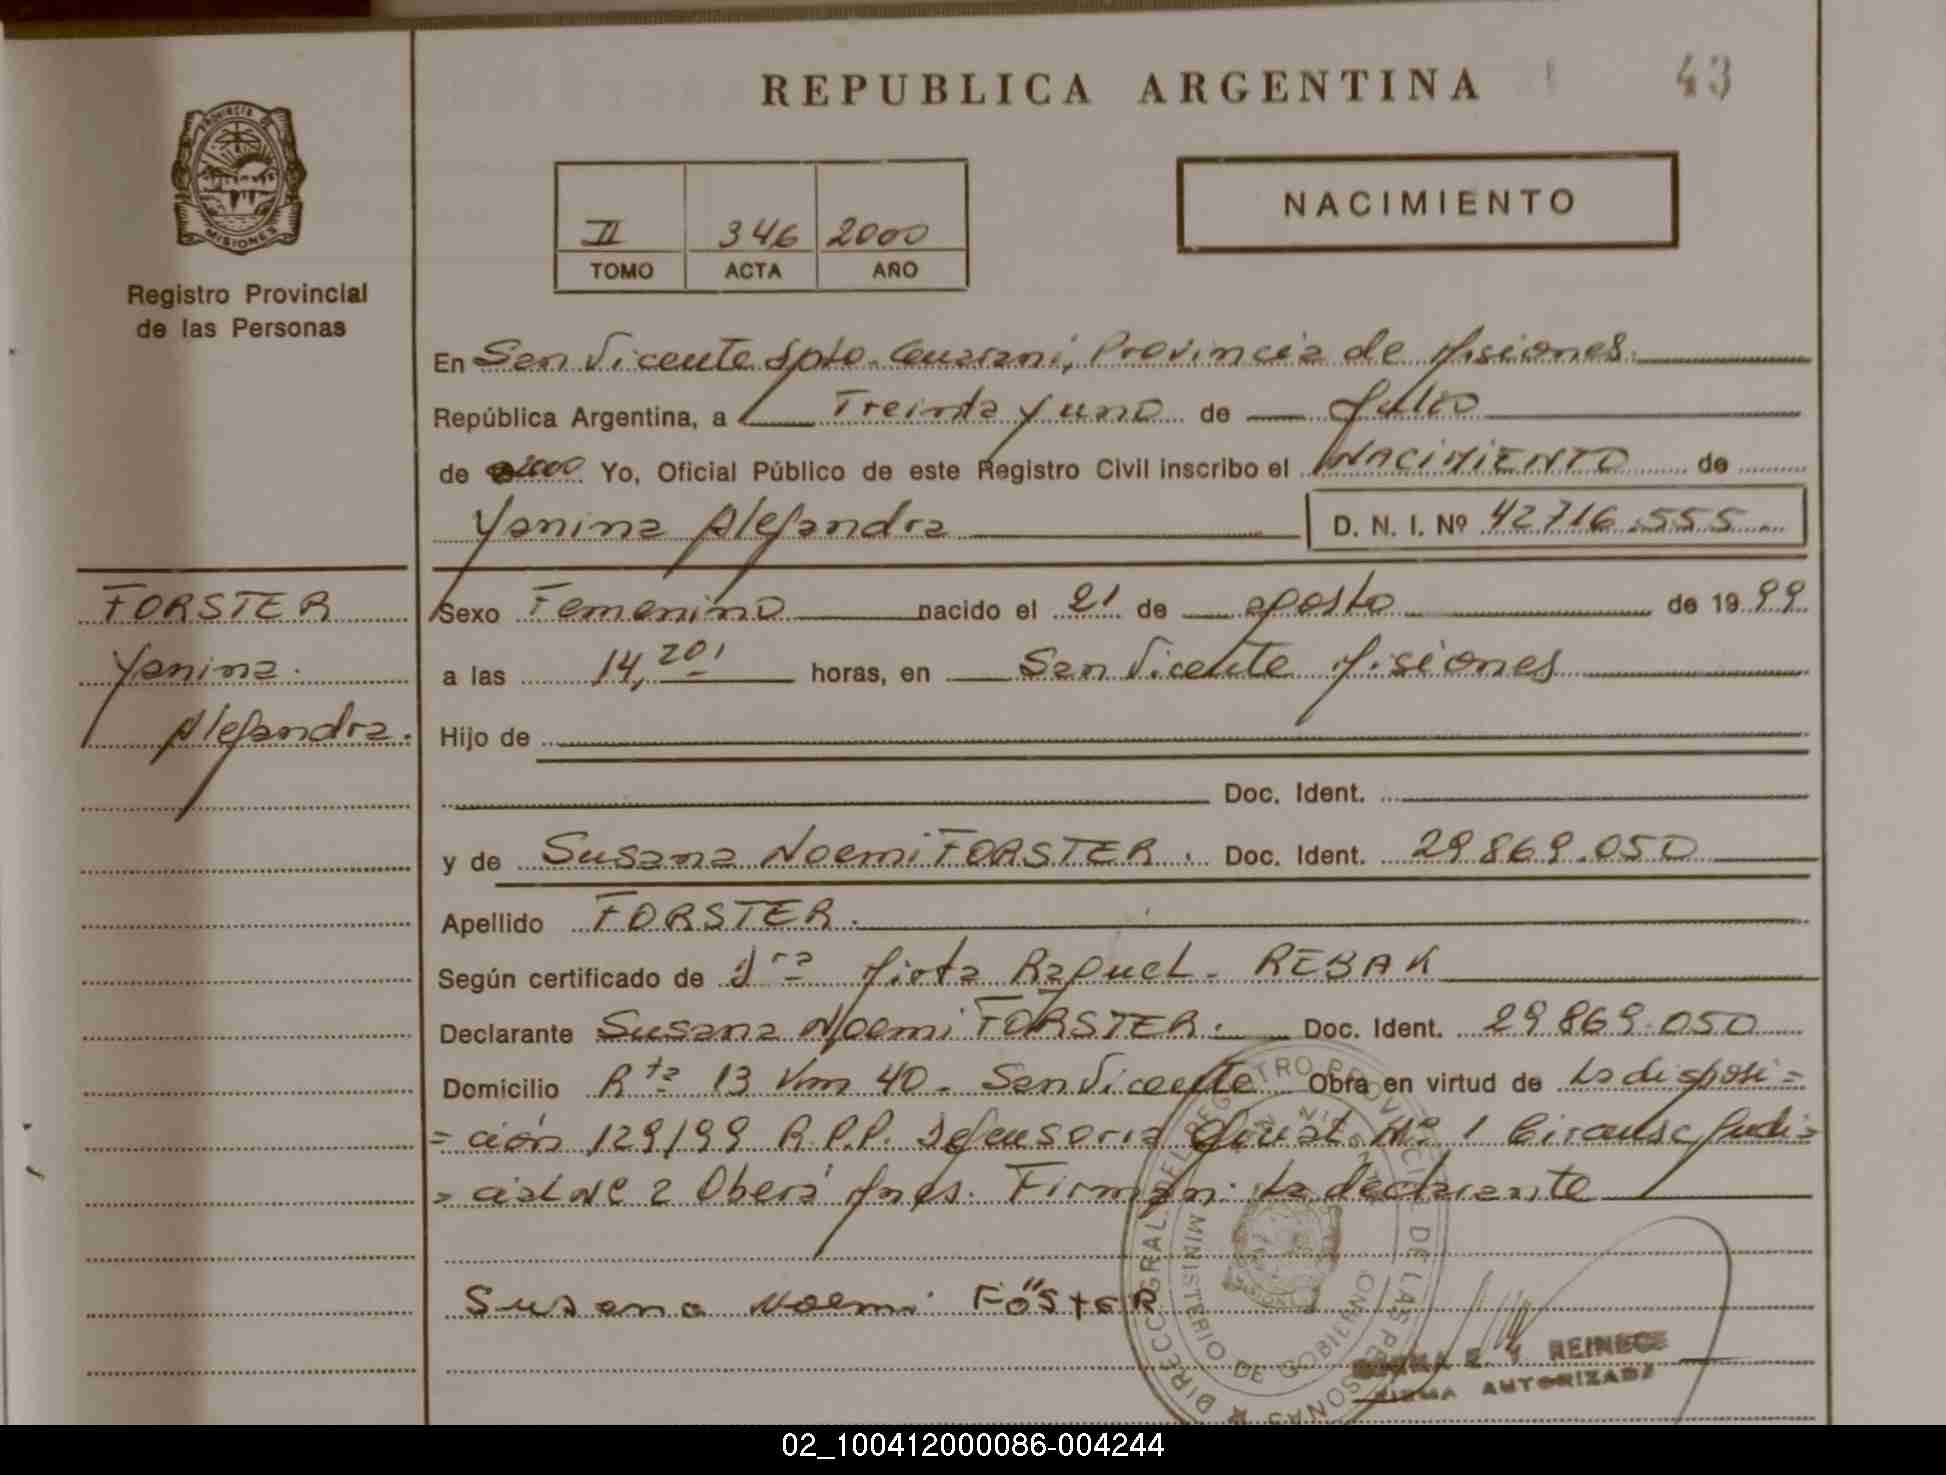 REPUBLICA ARGENTINA
43
PROVINCIA DE
MISIONES
Registro Provincial
de las Personas
II 346 2000
TOMO ACTA AÑO
NACIMIENTO
En San Vicente Dpto. Guarani, Provincia de Misiones
República Argentina, a Treinta y uno de Julio
de 2000 Yo, Oficial Público de este Registro Civil inscribo el NACIMIENTO de
Yanina Alejandra D. N. I. Nº 42716.555
FORSTER
Yanina
Alejandra.
Sexo Femenino nacido el 21 de agosto de 1999
a las 14,20 horas, en San Vicente Misiones
Hijo de
Doc. Ident.
y de Susana Noemi FORSTER. Doc. Ident. 29869.050
Apellido FORSTER.
Según certificado de Dra Mirta Raquel REBAK
Declarante Susana Noemi FORSTER. Doc. Ident. 29869.050
Domicilio Rta 13 Km 40 - San Vicente Obra en virtud de La disposi=
=ción 129/99 R.P.P. Defensoria Oficial Nº 1 Circunsc Judi=
=cial Nº 2 Oberá Mnes. Firman: La declarante
Susana Noemi FöSteR
DIRECC. GRAL. DEL REGISTRO PROVINCIAL DE LAS PERSONAS
SAN VICENTE
MINISTERIO DE GOBIERNO
E. REINECE
FIRMA AUTORIZADA
02_100412000086-004244